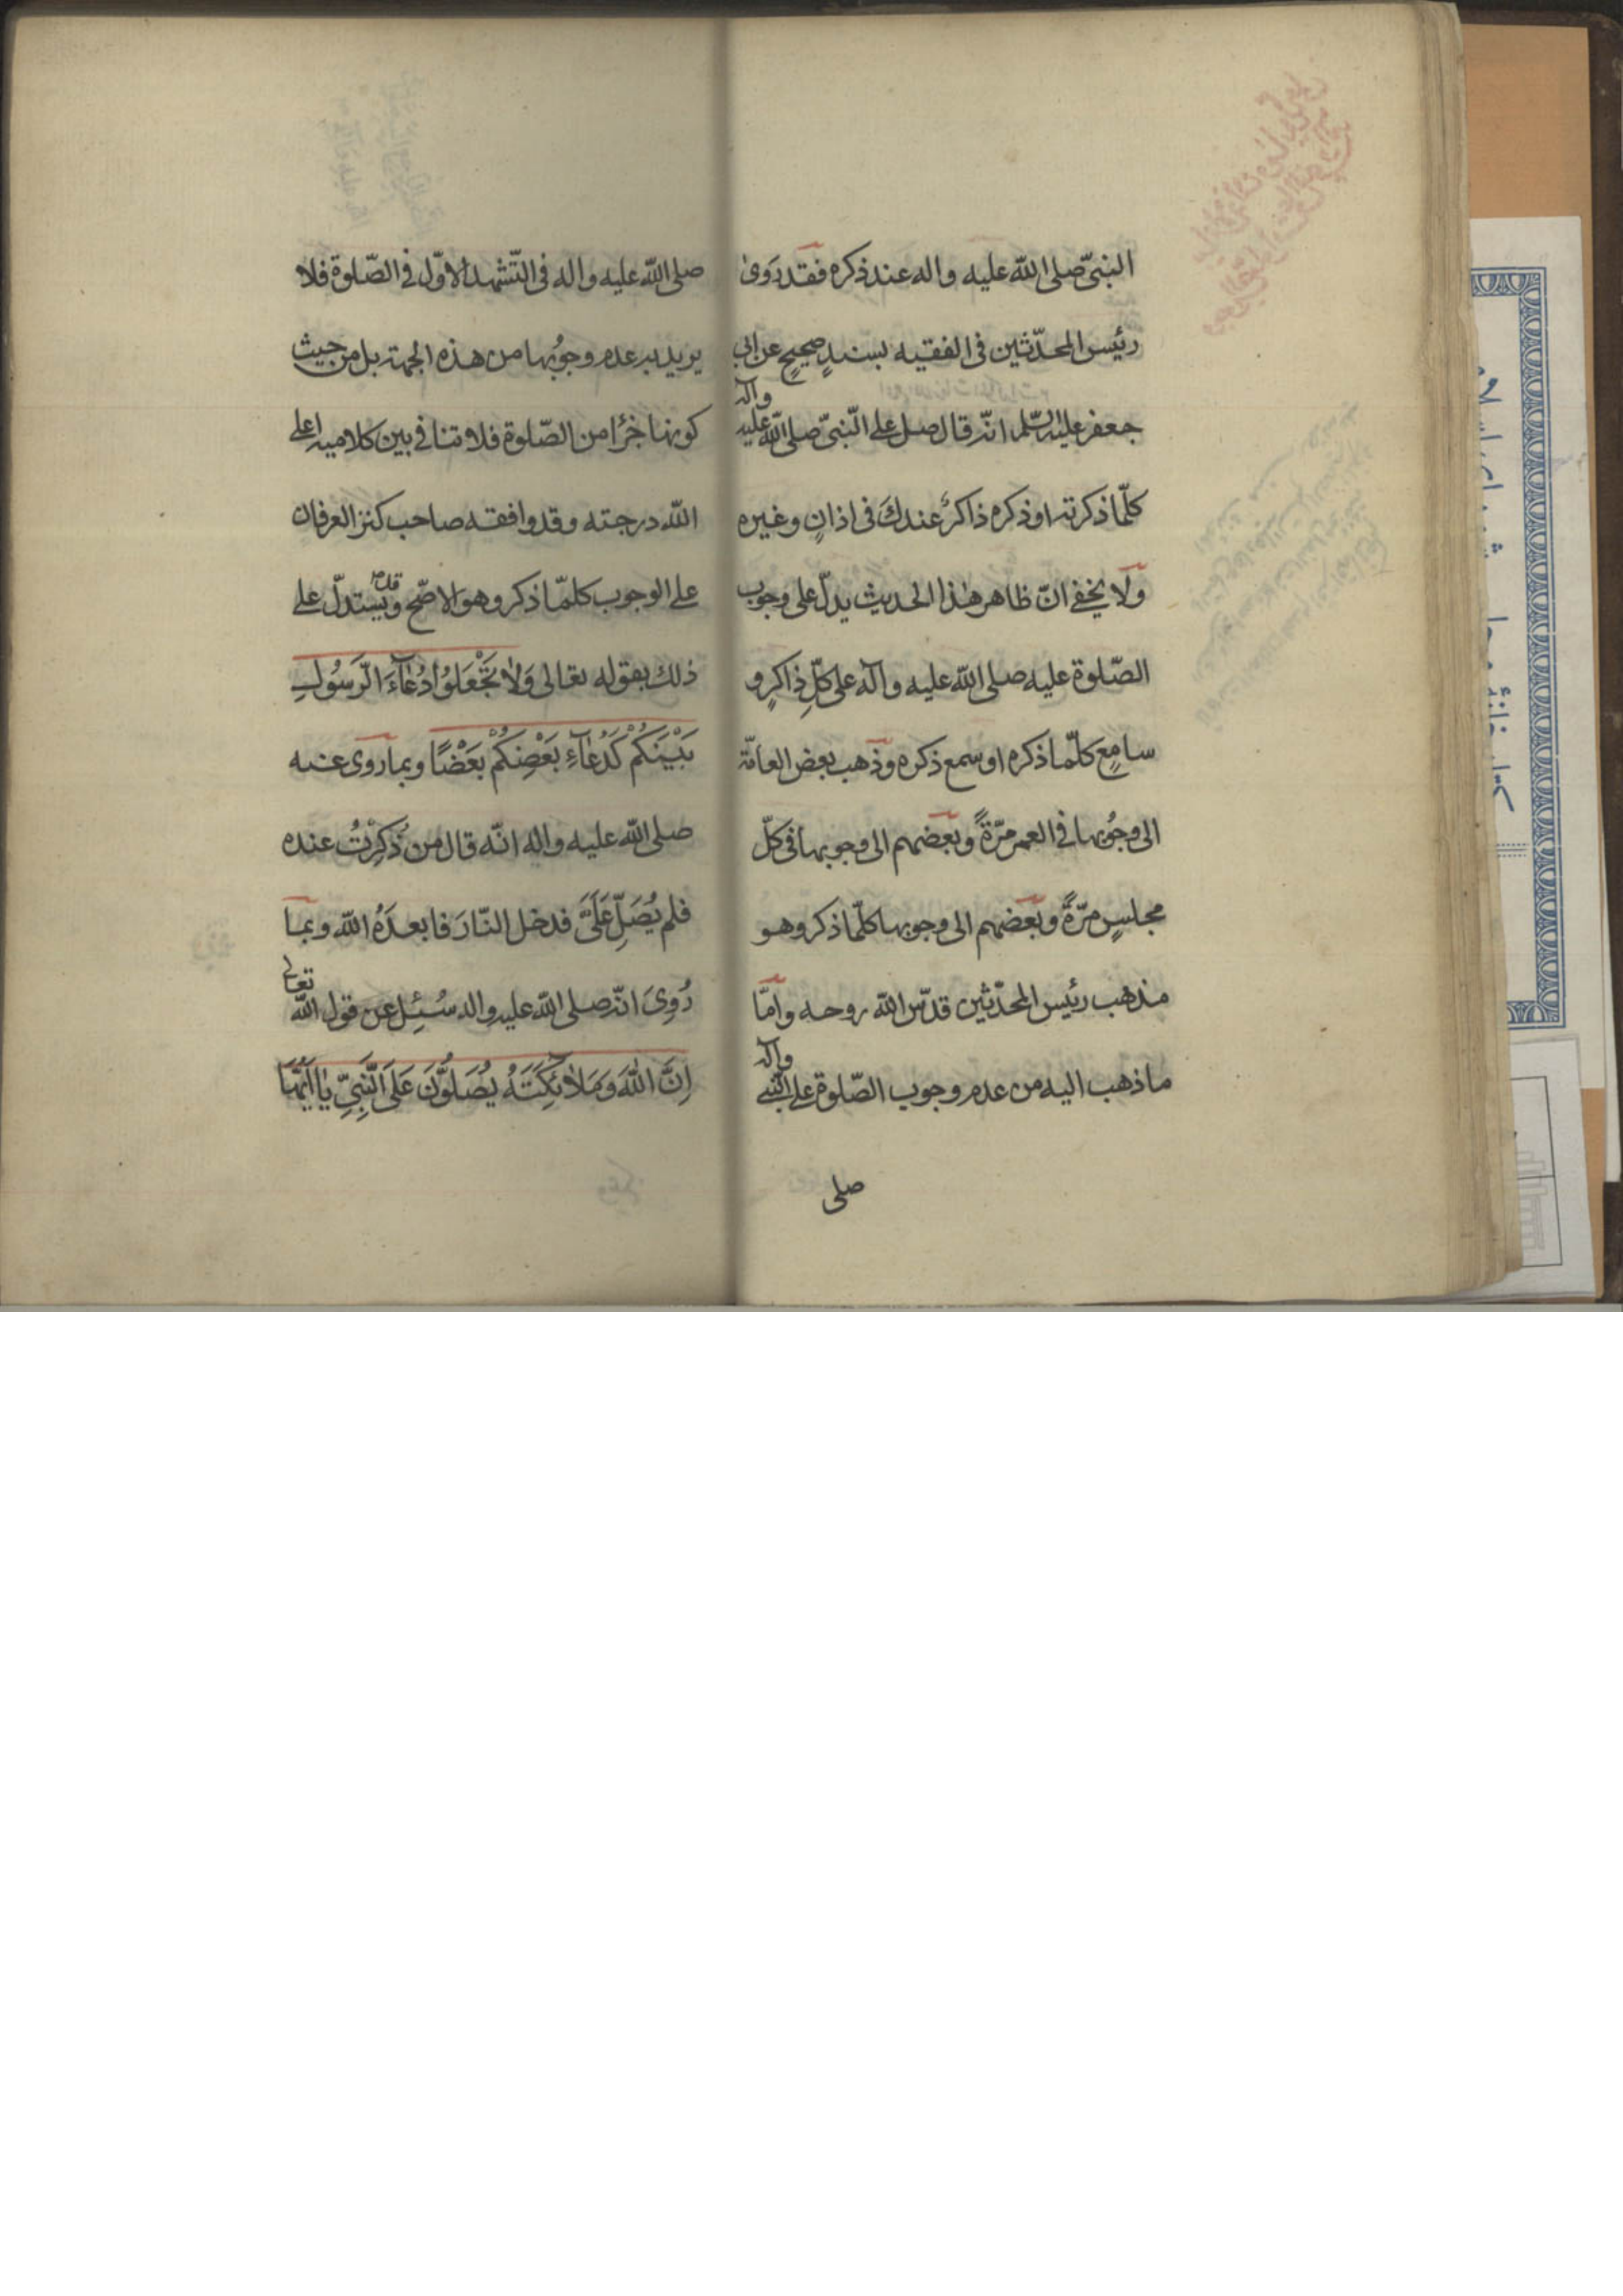 النبىّ صلى الله عليه واله عند ذكره فقد رَوىٰ
رئيس المحدّثين فى الفقيه بسندٍ صحيحٍ عن ابى
جعفر عليه السّلم انّه قال صل على النّبىّ صلى الله عليه وآله
كلّما ذكرته او ذكره ذاكرٌ عندكَ فى اذانٍ وغيره
ولا يخفى انّ ظاهر هٰذا الحديث يدلّ على وجوب
الصّلوة عليه صلى الله عليه وآله على كلِّ ذاكرٍ و
سامِعٍ كلّما ذكره او سمع ذكره وذهب بعض العامّة
الى وجُوبها فى العمر مرّةً وبعضهم الى وجوبها فى كلّ
مجلسٍ مرّةً وبعضهم الى وجوبها كلّما ذكر وهو
مذهب رئيس المحدّثين قدّس الله روحه وامّا
ما ذهب اليه من عدم وجوب الصّلوة على النّبى وآله
صلى
صلى الله عليه واله فى التّشهد الاوّل فى الصّلوة فلا
يريد به عدم وجوُبها من هذه الجهة بل من حيث
كونها جزًا من الصّلوة فلا تنافى بين كلاميه اعلى
الله درجته وقد وافقه صاحب كنز العرفان
على الوجوب كلمّا ذكر وهو الاصّح وقد يستدلّ على
ذلك بقوله تعالى وَلاٰ تَجْعَلوُا دُعٰآءَ الرَّسوُلِ
بَيْنَكُمْ كَدُعٰآءِ بَعْضِكُمْ بَعْضًا وبما روى عنه
صلى الله عليه واله انّه قال من ذُكِرْتُ عنده
فلم يُصَلِّ عَلَىَّ فدخل النّارَ فابعدَهُ الله وبما
رُوِىَ انّه صلى الله عليه واله سُئِل عن قول الله تعالى
اِنَّ اللّٰهَ وَمَلاٰئِكَتَهُ يُصَلوُّنَ عَلَى النَّبِىِّ يٰا اَيُّهَا